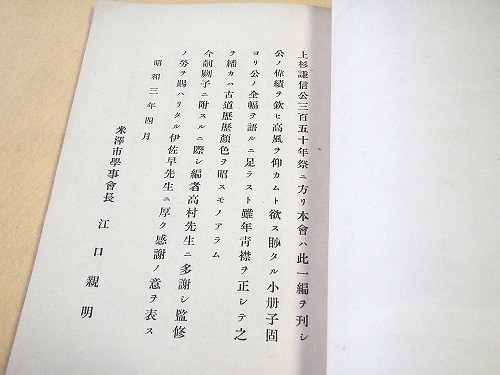 上杉謙信公三百五十年祭ニ方リ本會ハ此一編ヲ刊シ
公ノ偉績ヲ欽ヒ高風ヲ仰カムト欲ス眇タル小册子固
ヨリ公ノ全幅ヲ語ルニ足ラスト雖年靑襟ヲ正シテ之
ヲ繙カハ古道歷歷顏色ヲ昭スモノアラム
今剞劂子ニ附スルニ際シ編者高村先生ニ多謝シ監修
ノ勞ヲ賜ハリタル伊佐早先生ニ厚ク感謝ノ意ヲ表ス
昭和三年四月
米澤市學事會長 江口親明